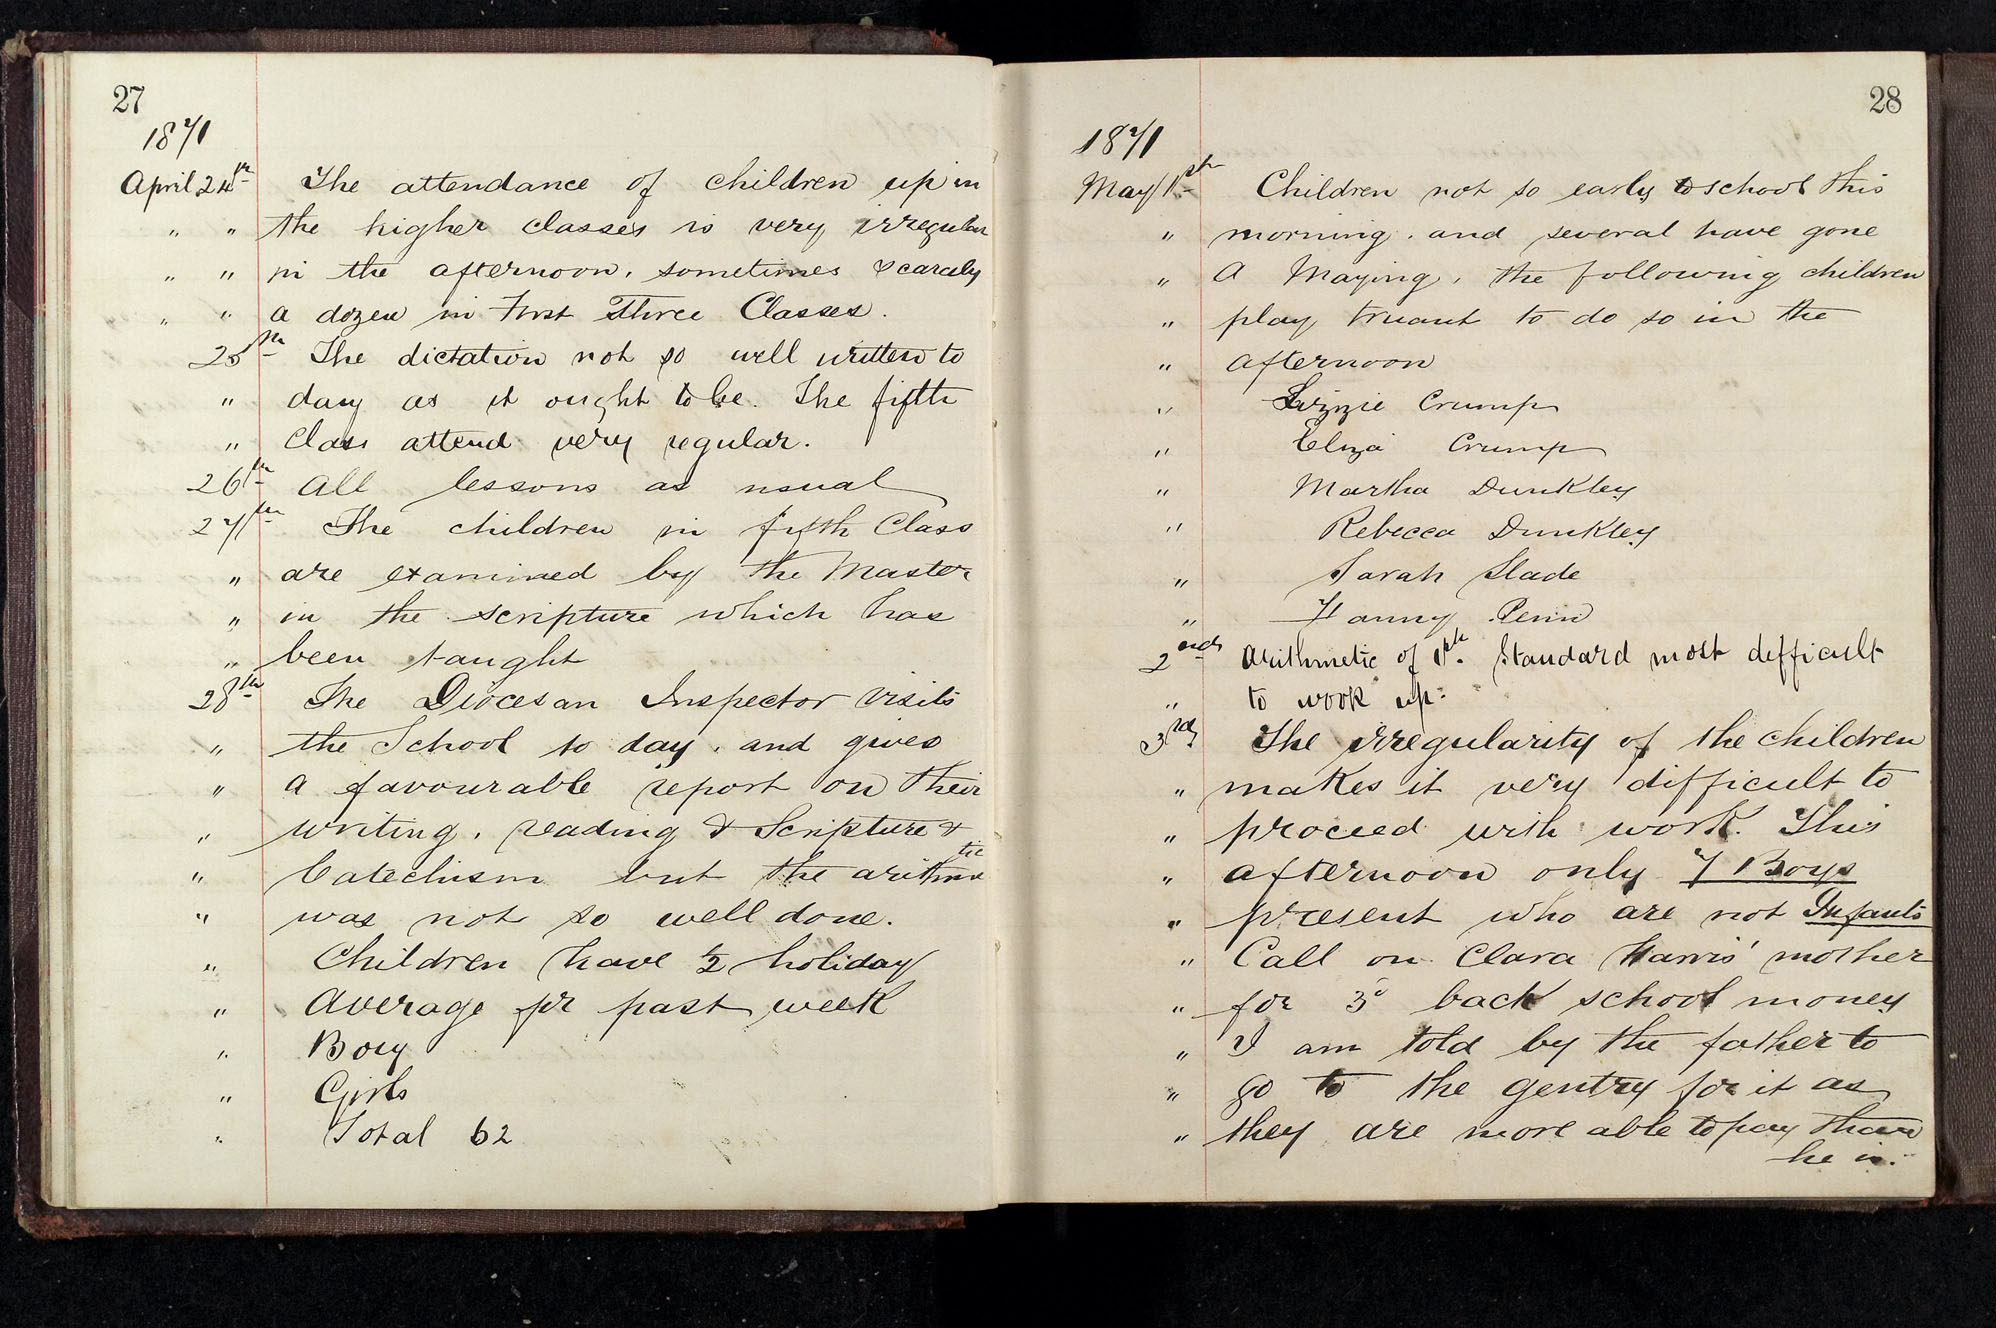 27
1871
April 24th The attendance of children up in
" " the higher classes is very irregular
" " in the afternoon, sometimes scarcely
" " a dozen in First Three Classes.
25th The dictation not so well written to
" day as it ought to be. The fifth
" Class attend very regular.
26th All lessons as usual
27th The children in fifth Class
" are examined by the Master
" in the scripture which has
" been taught
28th The Diocesan Inspector visits
" the School to day, and gives
" a favourable report on their
" writing, reading & Scripture &
" Catechism but the arithmetic
" was not so well done.
" Children have ½ holiday
" Average pr past week
" Boys
" Girls
" Total 62
28
1871
May 1st Children not so early to school this
" morning, and several have gone
" A Maying, the following children
" play truant to do so in the
" afternoon
" Lizzie Crump
" Eliza Crump
" Martha Dunkley
" Rebecca Dunkley
" Sarah Slade
" Fanny Penn
2nd Arithmetic of 1st Standard most difficult
" to work up.
3rd The irregularity of the children
" makes it very difficult to
" proceed with work. This
" afternoon only 7 Boys
" present who are not Infants
" Call on Clara Harris' mother
" for 3d back school money
" I am told by the father to
" go to the gentry for it as
" they are more able to pay than
he is.